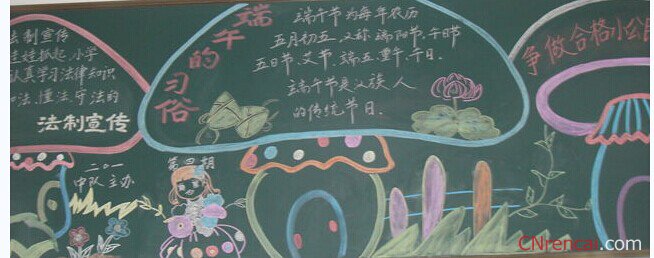 法制宣传
娃娃抓起,小学
认真学习法律知识
法、懂法、守法的
法制宣传
二〇一
中队主办
第四期
端午的习俗
端午节为每年农历
五月初五,又称端阳节、午日节
五日节、艾节、端五、重午、午日、
端午节是汉族人
的传统节日。
争做合格小公
CNrencai.com